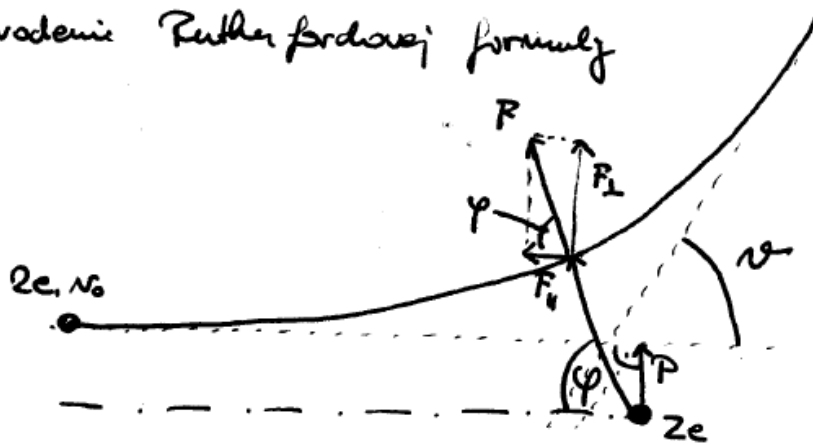 vodenie Rutherfordovej formuly
F
F⊥
φ
F∥
2e, v₀
ϑ
φ
P
Ze